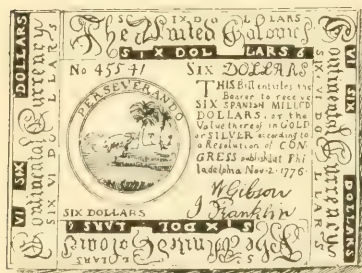 SIX DOLLARS
The United Colonies
SIX DOLLARS 6
No 45541
SIX DOLLARS
PERSEVERANDO
THIS Bill entitles the
Bearer to receive
SIX SPANISH MILLED
DOLLARS, or the
Value thereof in GOLD
or SILVER according to
a Resolution of CON-
GRESS publish'd at Phi
ladelphia Nov. 2. 1776.
W Gibson
J Franklin
SIX DOLLARS
SIX DOLLARS
The United Colonies
DOLLARS
VI SIX
Continental Currency
SIX VI DOLLARS
Continental Currency
SIX VI DOLLARS
VI SIX
DOLLARS